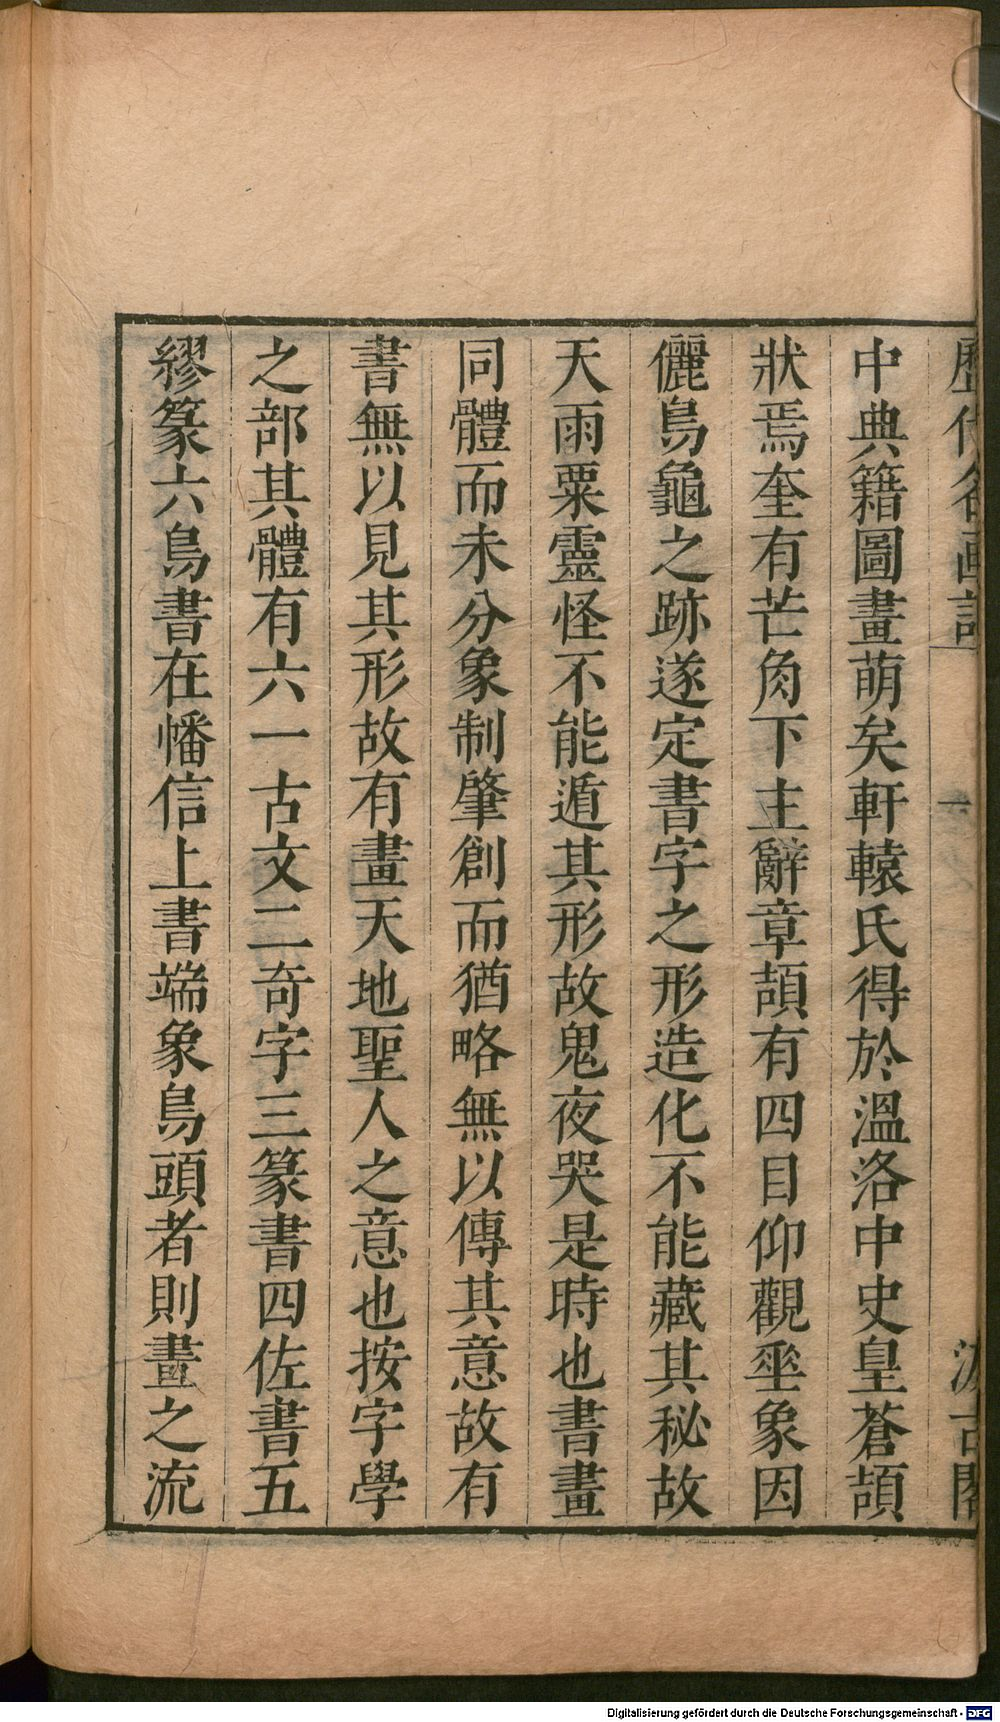 歷代名畫記 一 汲古閣
中典籍圖畫萌矣軒轅氏得於溫洛中史皇蒼頡
狀焉奎有芒角下主辭章頡有四目仰觀垂象因
儷鳥龜之跡遂定書字之形造化不能藏其秘故
天雨粟靈怪不能遁其形故鬼夜哭是時也書畫
同體而未分象制肇創而猶略無以傳其意故有
書無以見其形故有畫天地聖人之意也按字學
之部其體有六一古文二奇字三篆書四佐書五
繆篆六鳥書在幡信上書端象鳥頭者則畫之流
Digitalisierung gefördert durch die Deutsche Forschungsgemeinschaft - DFG